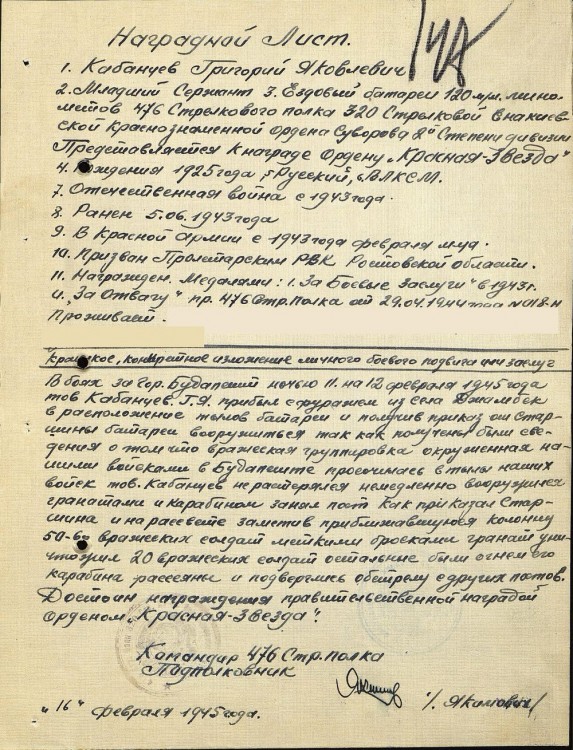 Наградной Лист.
1. Кабанцев Григорий Яковлевич
2. Младший Сержант 3. Ездовый батареи 120 мм. мино-
метов 476 Стрелкового полка 320 Стрелковой Енакиев-
ской Краснознаменной Ордена Суворова 2й Степени дивизии
Представляется к награде Ордену "Красная-Звезда"
4. Рождения 1925 года, 5 Русский, 6 ВЛКСМ.
7. Отечественная война с 1943 года.
8. Ранен 5.06.1943 года
9. В Красной Армии с 1943 года февраля м-ца.
10. Призван Пролетарским РВК Ростовской области.
11. Награжден. Медалями: 1. За Боевые заслуги" в 1943 г.
и "За Отвагу" пр. 476 Стр. Полка от 29.04.1944 года №018-н
Проживает.
Краткое, конкретное изложение личного боевого подвига или заслуг
В боях за гор. Будапешт ночью 11. на 12 февраля 1945 года
тов Кабанцев. Г.Я. прибыл с фуражем из села Джамбек
в расположение тылов батареи и получив приказ от Стар-
шины батареи вооружиться так как получены были све-
дения о том что вражеская группировка окруженная на-
шими войсками в Будапеште просочилась в тылы наших
войск тов. Кабанцев не растерялся немедленно вооружився
гранатами и карабином занял пост как приказал Стар-
шина и на рассвете заметив приближавшуюся колонну
50-60 вражеских солдат меткими бросками гранат уни-
чтожил 20 вражеских солдат остальные были огнем его
карабина рассеяны и подверглись обстрелу с других постов.
Достоин награждения правительственной наградой
Орденом "Красная-Звезда".
Командир 476 Стр. полка
Подполковник
/. Якимович/
"16" февраля 1945 года.